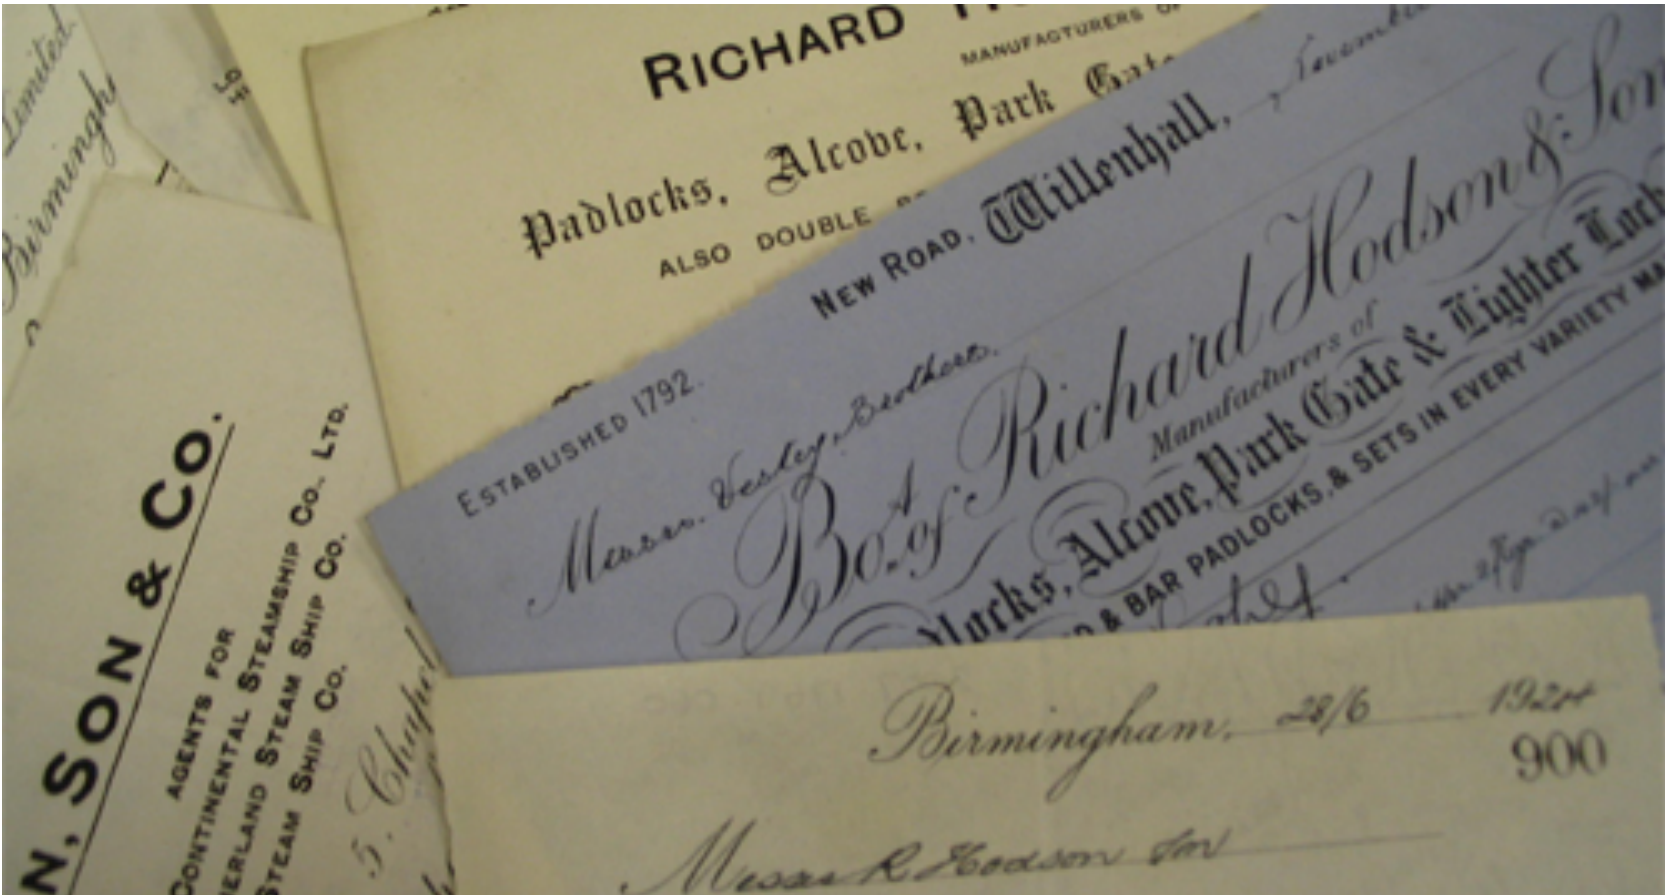 Limited
Birmingh
RICHARD
MANUFACTURERS
Padlocks, Alcove, Park Gate
ALSO DOUBLE
NEW ROAD, Willenhall,
ESTABLISHED 1792.
Messrs. Vesley Brothers.
Bot. of Richard Hodson & Son
Manufacturers of
dlocks, Alcove, Park Gate & Lighter Lock
D & BAR PADLOCKS, & SETS IN EVERY VARIETY MA
N, SON & CO.
AGENTS FOR
CONTINENTAL STEAMSHIP CO., LTD.
ERLAND STEAM SHIP CO.
STEAM SHIP CO.
5. Chapel
Birmingham, 28/6 1924
900
Messrs R Hodson Son